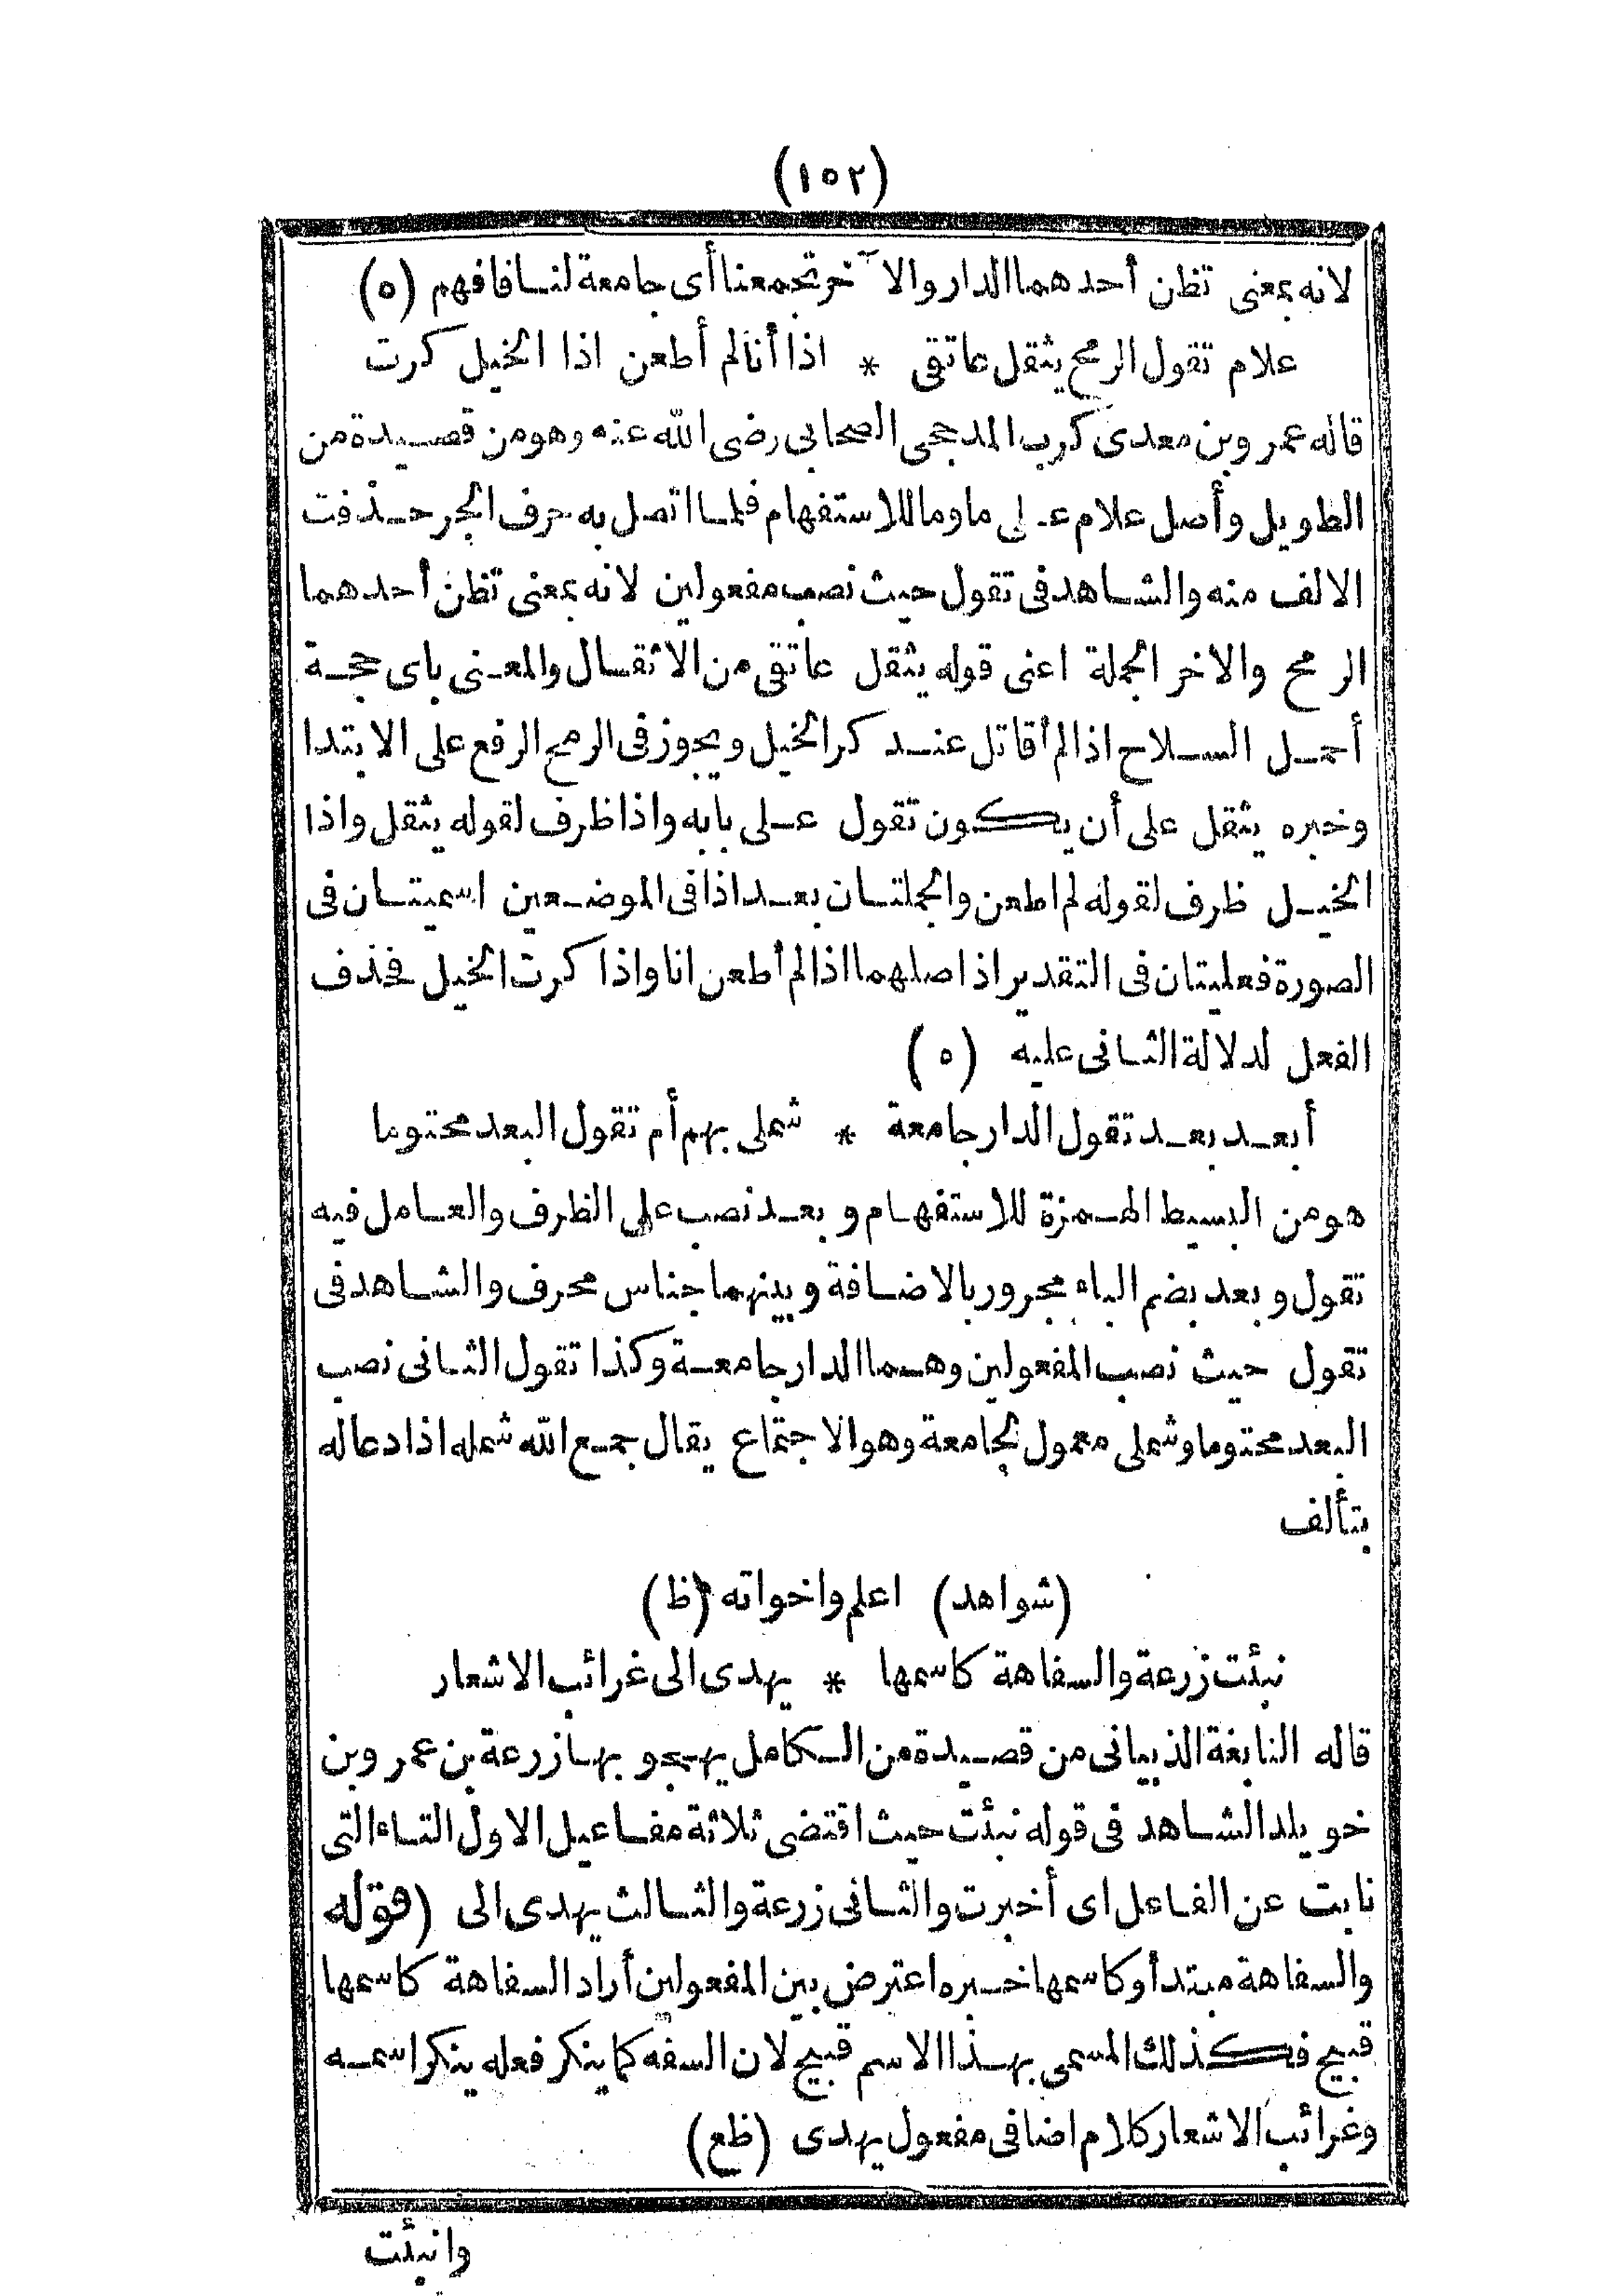 (١٥٢)
لانه بمعنى تظن أحدهما الدار والآخر تجمعنا أى جامعة لنا فافهم (ه)
علام تقول الرمح يثقل عاتقى * اذا أنا لم أطعن اذا الخيل كرت
قاله عمرو بن معدى كرب المدججى الصحابى رضى الله عنه وهو من قصيدة من
الطويل وأصل علام على ما وما للاستفهام فلما اتصل به حرف الجر حذفت
الالف منه والشاهد فى تقول حيث نصب مفعولين لانه بمعنى تظن أحدهما
الرمح والاخر الجملة اعنى قوله يثقل عاتقى من الاثقال والمعنى باى حجة
أحمل السلاح اذا لم أقاتل عند كر الخيل ويجوز فى الرمح الرفع على الابتدا
وخبره يثقل على أن يكون تقول على بابه واذا ظرف لقوله يثقل واذا
الخيل ظرف لقوله لم اطعن والجملتان بعد اذا فى الموضعين اسميتان فى
الصورة فعليتان فى التقدير اذ اصلهما اذا لم أطعن انا واذا كرت الخيل فحذف
الفعل لدلالة الثانى عليه (ه)
أبعد بعد تقول الدار جامعة * شملى بهم أم تقول البعد محتوما
هو من البسيط الهمزة للاستفهام و بعد نصب على الظرف والعامل فيه
تقول و بعد بضم الباء مجرور بالاضافة و بينهما جناس محرف والشاهد فى
تقول حيث نصب المفعولين وهما الدار جامعة وكذا تقول الثانى نصب
البعد محتوما وشملى معمول لجامعة وهو الاجتماع يقال جمع الله شمله اذا دعا له
بتألف
(شواهد) اعلم واخواته (ظ)
نبئت زرعة والسفاهة كاسمها * يهدى الى غرائب الاشعار
قاله النابغة الذبيانى من قصيدة من الكامل يهجو بها زرعة بن عمرو بن
خويلد الشاهد فى قوله نبئت حيث اقتضى ثلاثة مفاعيل الاول التاء التى
نابت عن الفاعل اى أخبرت والثانى زرعة والثالث يهدى الى (قوله
والسفاهة مبتدأ وكاسمها خبره اعترض بين المفعولين أراد السفاهة كاسمها
قبيح فكذلك المسمى بهذا الاسم قبيح لان السفه كما ينكر فعله ينكر اسمه
وغرائب الاشعار كلام اضافى مفعول يهدى (ظع)
وانبئت